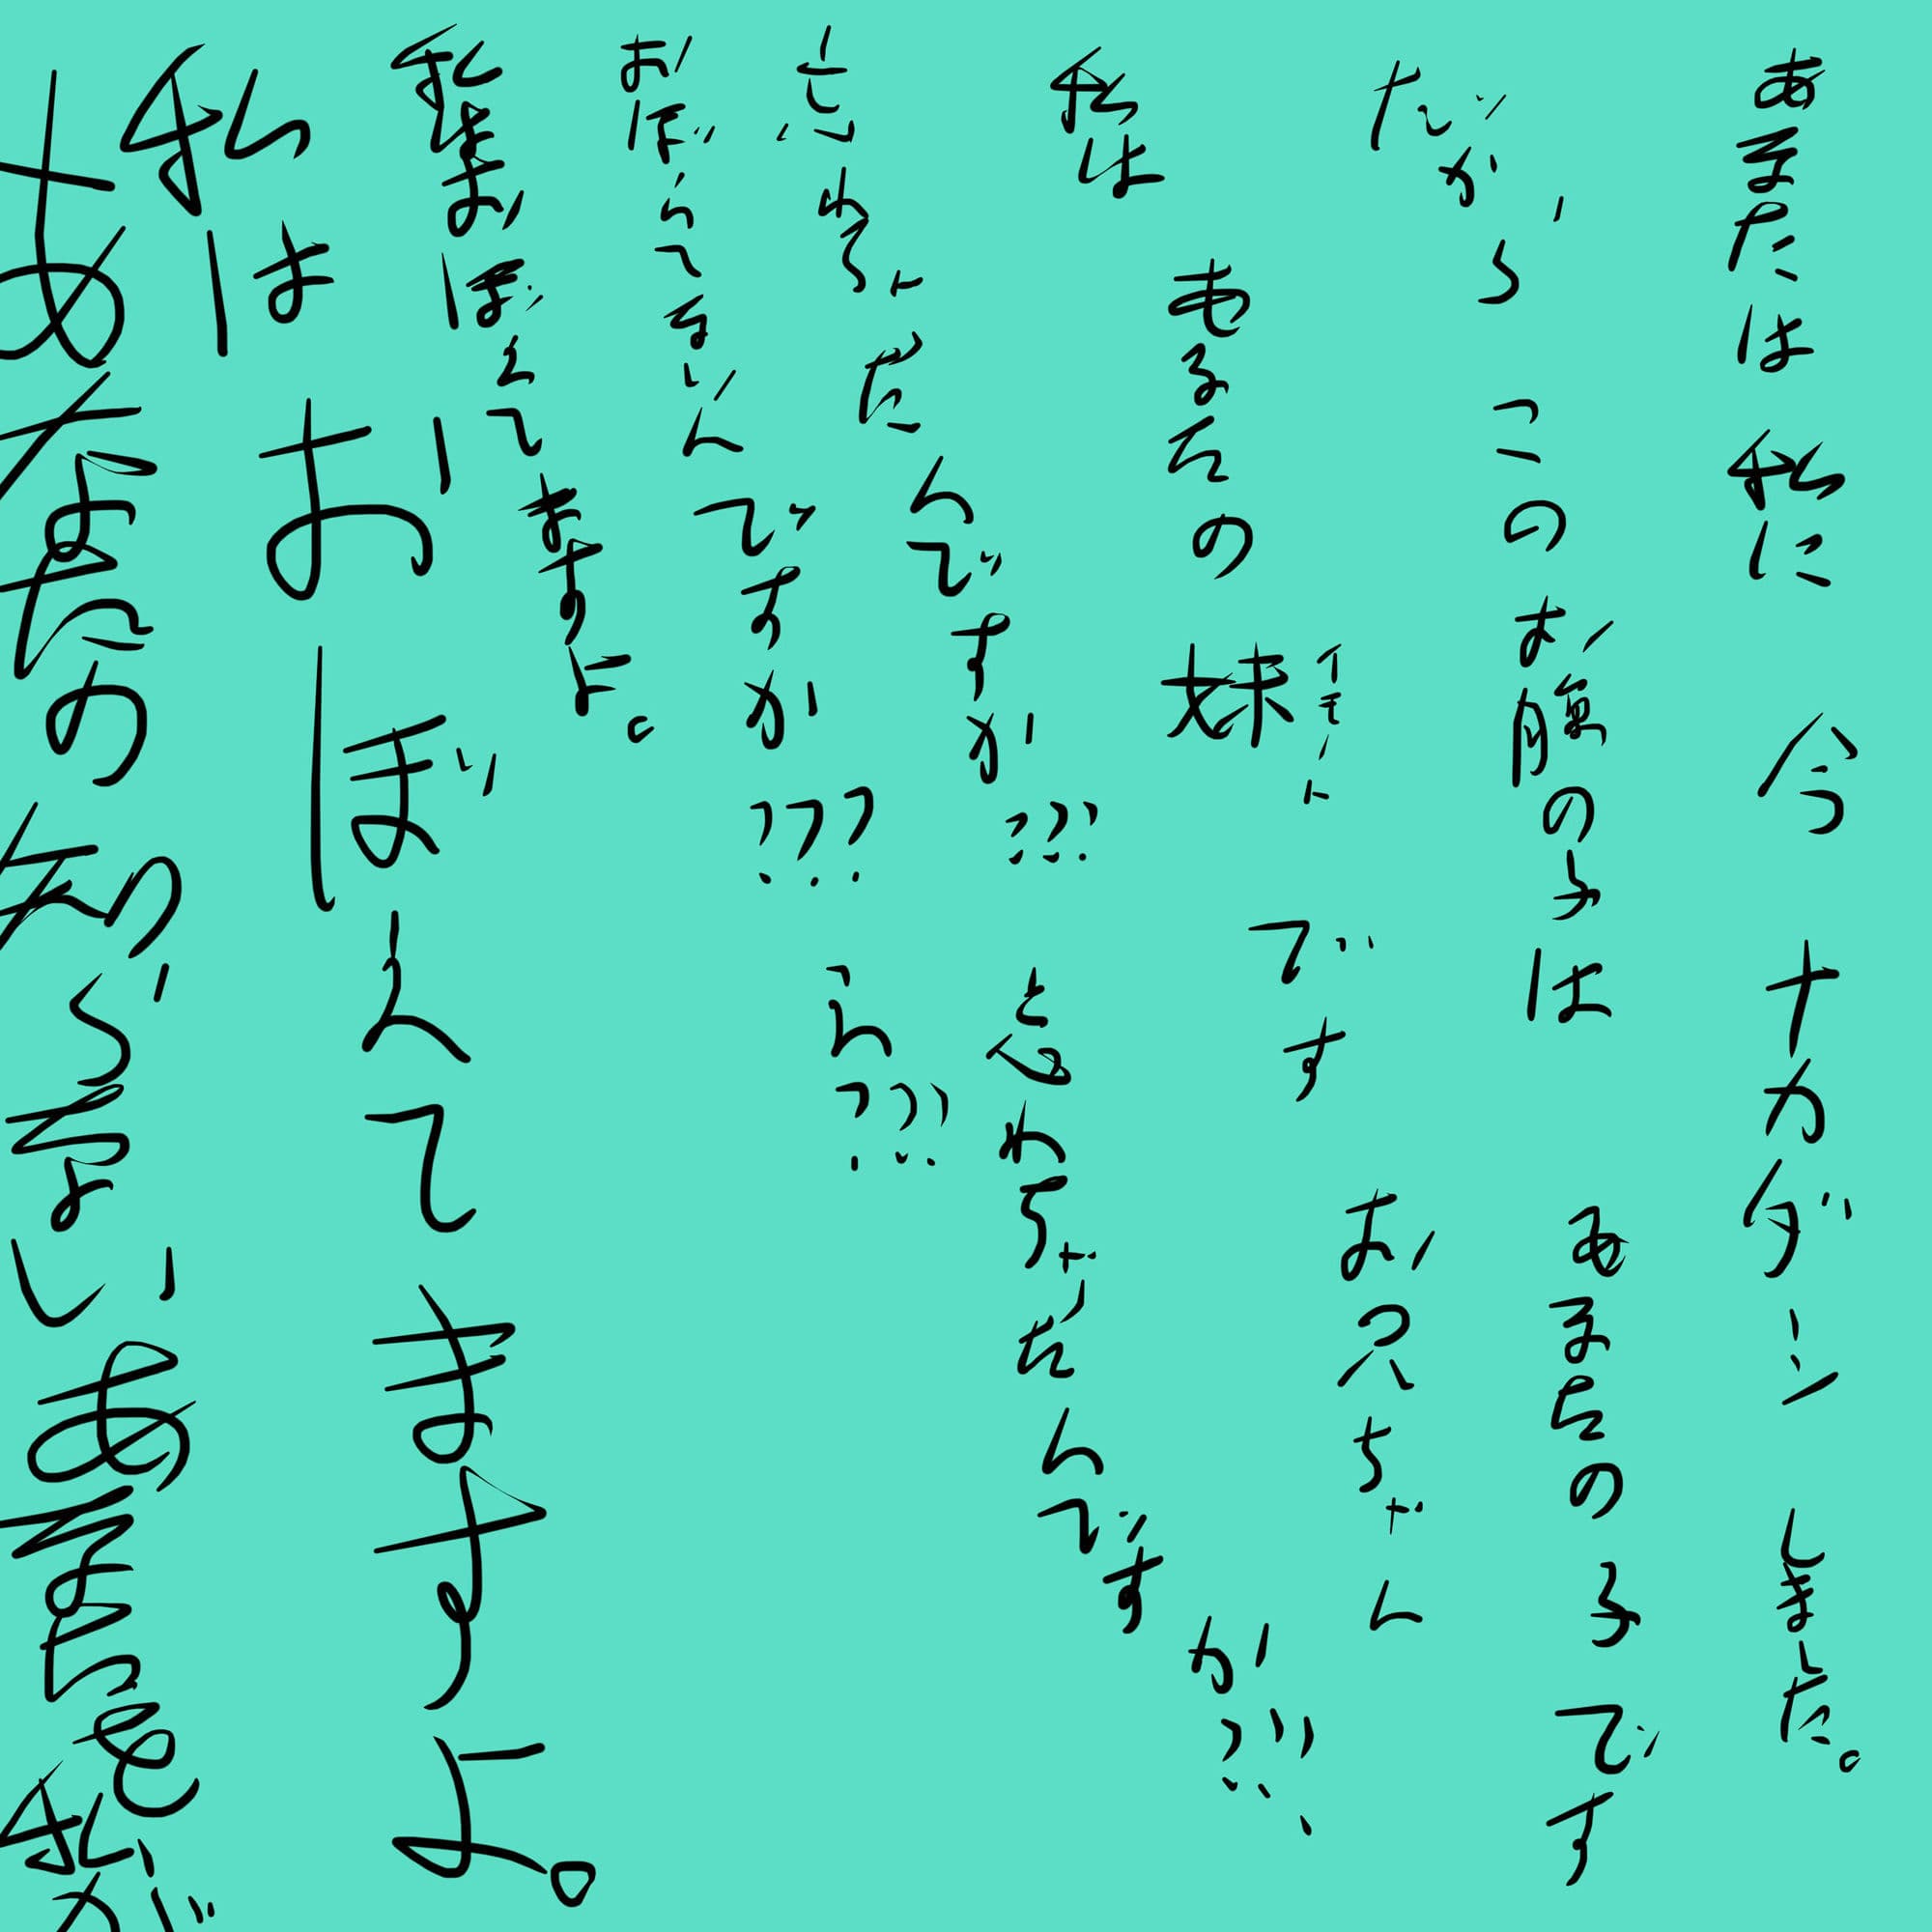 あなたは私に今ナカダシしました。
だからこのお腹の子はあなたの子です
私はあなたの妹ですお兄ちゃん
忘れちゃったんですか???忘れちゃったんですか???
おぼえてませんですか???ええ???
私おぼえてますよ。
私はおぼえてますよ。
あなたの知らないあなたを私が